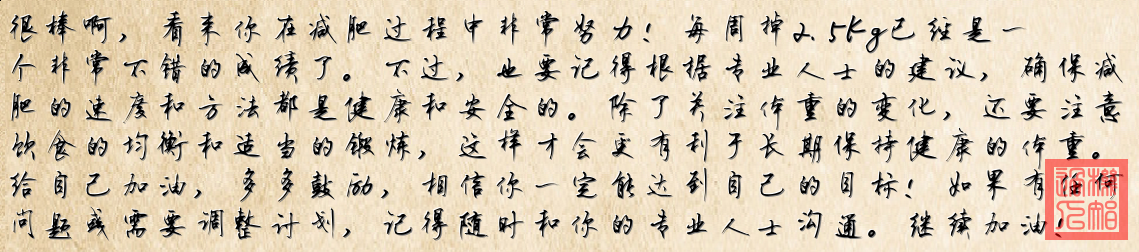 很棒啊，看来你在减肥过程中非常努力！每周掉2.5Kg已经是一
个非常不错的成绩了。不过，也要记得根据专业人士的建议，确保减
肥的速度和方法都是健康和安全的。除了关注体重的变化，还要注意
饮食的均衡和适当的锻炼，这样才会更有利于长期保持健康的体重。
给自己加油，多多鼓励，相信你一定能达到自己的目标！如果有任何
问题或需要调整计划，记得随时和你的专业人士沟通。继续加油！